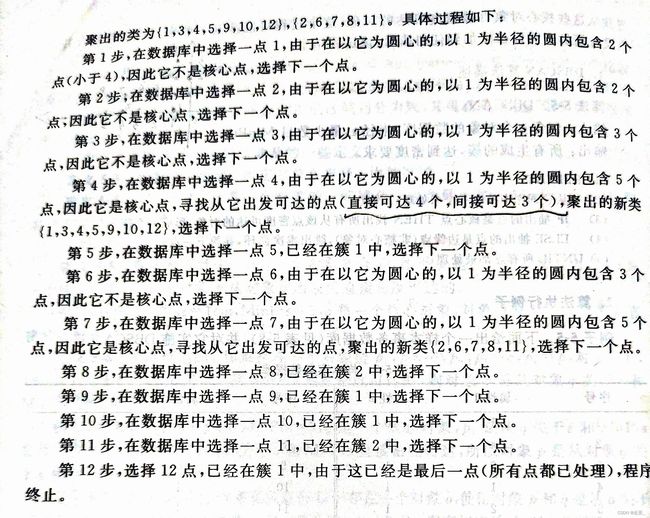 聚出的类为{1,3,4,5,9,10,12},{2,6,7,8,11}。具体过程如下:
第 1 步,在数据库中选择一点 1,由于在以它为圆心的,以 1 为半径的圆内包含 2 个
点(小于 4),因此它不是核心点,选择下一个点。
第 2 步,在数据库中选择一点 2,由于在以它为圆心的,以 1 为半径的圆内包含 2 个
点,因此它不是核心点,选择下一个点。
第 3 步,在数据库中选择一点 3,由于在以它为圆心的,以 1 为半径的圆内包含 3 个
点,因此它不是核心点,选择下一个点。
第 4 步,在数据库中选择一点 4,由于在以它为圆心的,以 1 为半径的圆内包含 5 个
点,因此它是核心点,寻找从它出发可达的点(直接可达 4 个,间接可达 3 个),聚出的新类
{1,3,4,5,9,10,12},选择下一个点。
第 5 步,在数据库中选择一点 5,已经在簇 1 中,选择下一个点。
第 6 步,在数据库中选择一点 6,由于在以它为圆心的,以 1 为半径的圆内包含 3 个
点,因此它不是核心点,选择下一个点。
第 7 步,在数据库中选择一点 7,由于在以它为圆心的,以 1 为半径的圆内包含 5 个
点,因此它是核心点,寻找从它出发可达的点,聚出的新类{2,6,7,8,11},选择下一个点。
第 8 步,在数据库中选择一点 8,已经在簇 2 中,选择下一个点。
第 9 步,在数据库中选择一点 9,已经在簇 1 中,选择下一个点。
第 10 步,在数据库中选择一点 10,已经在簇 1 中,选择下一个点。
第 11 步,在数据库中选择一点 11,已经在簇 2 中,选择下一个点。
第 12 步,选择 12 点,已经在簇 1 中,由于这已经是最后一点(所有点都已处理),程序
终止。